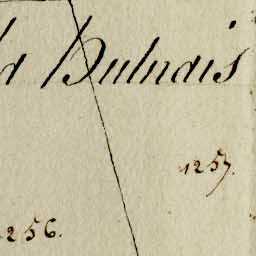 d Duludis
1257.
256.